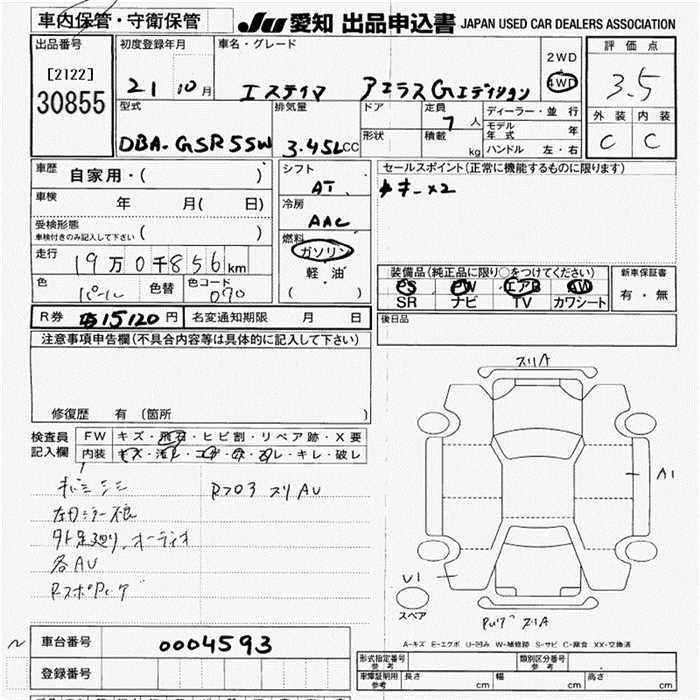 車内保管・守衛保管
JU 愛知 出品申込書 JAPAN USED CAR DEALERS ASSOCIATION
出品番号
[2122]
30855
初度登録年月
21 10月
車名・グレード
エスティマ アエラスGエディション
2WD
4WD
評価点
3.5
外装 内装
C C
型式
DBA-GSR55W
排気量
3.45L CC
ドア
形状
定員
7人
積載
kg
ディーラー・並行
モデル年式 年
ハンドル 左・右
車歴
自家用・( )
車検 年 月( 日)
受検形態
車検付きのみ記入して下さい ( )
走行
19万0千856km
色
パール
色替
色コード
070
シフト
AT
冷房
AAC
燃料
ガソリン
軽・油
( )
セールスポイント(正常に機能するものに限ります)
キー×2
装備品(純正品に限り○をつけてください)
PS PW エアB AW
SR ナビ TV カワシート
新車保証書
有・無
R券 15120円
名変通知期限 月 日
後日品
注意事項申告欄(不具合内容等は具体的に記入して下さい)
修復歴 有(箇所 )
検査員
記入欄
FW キズ・飛石・ヒビ割・リペア跡・X要
内装 キズ・汚レ・コゲ・穴・スレ・キレ・破レ
左ドアミラー不良
外足廻り、オーディオ
各AU
スリA
A1
U1
スペア
スリA
A-キズ E-エクボ U-凹み W-補修跡 S-サビ C-腐食 XX-交換済
車台番号
0004593
登録番号
形式指定番号
参考
類別区分番号
参考
車庫証明用
参考
長さ cm 幅 cm 高さ cm